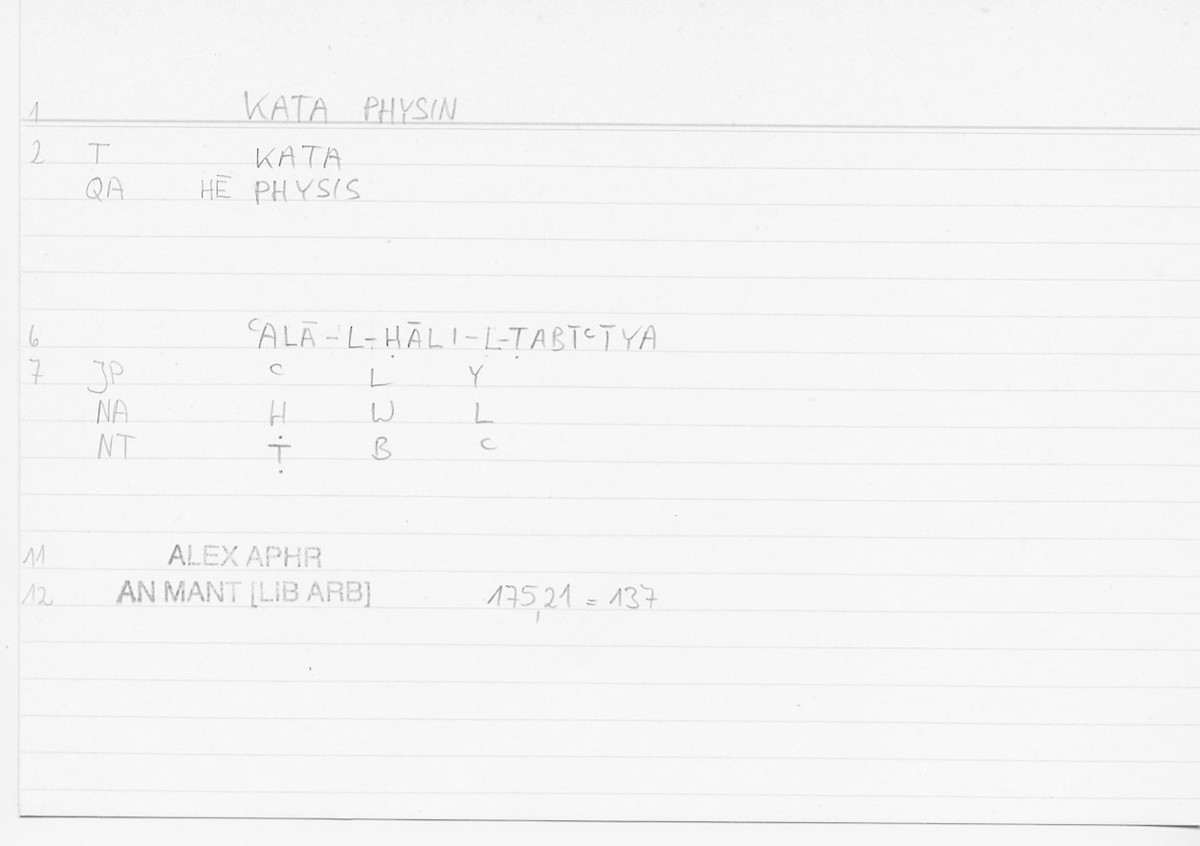 1 KATA PHYSIN
2 T KATA
QA HĒ PHYSIS
6 ᶜALĀ-L-ḤĀLI-L-ṬABĪᶜĪYA
7 JP ᶜ L Y
NA Ḥ W L
NT Ṭ B ᶜ
11 ALEX APHR
12 AN MANT [LIB ARB] 175,21 = 137